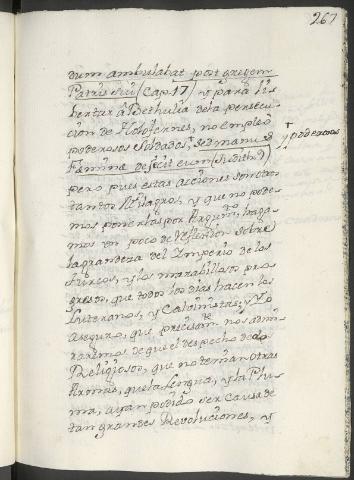 267
dum ambulabat post gregem
Patris sui (Cap. 17) y para li-
bertar â Bethulia de la persecu-
cion de Holofernes, no empleó
poderosos Soldados, sed manus
Feminæ dejecit eum (Judith. 9)
pero pues estas acciones son otros
tantos Milagros, y que no pode-
mos ponerlas por Argum.to, haga-
mos un poco de reflexion sobre
la grandeza del Imperio de los
Turcos, y los marabillosos pro-
gresos, que todos los dias hacen los
Luteranos, y Calvinistas; y Yo
aseguro, que precisam.te nos admi-
raremos de que el despecho de dos
Religiosos, que no tenian otras
Armas, que la Lengua, y la Plu-
ma, ayan podido ser causa de
tan grandes Revoluciones, y